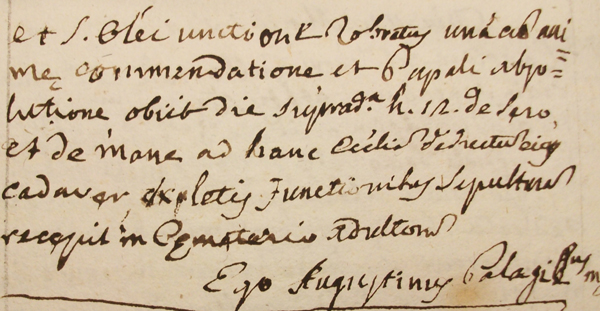 et S. Olei unctione roboratus una cū ani=
mę commendatione et Papali abso=
lutione obiit die suprad.ª h. 12. de sero,
et de mane ad hanc Ecclīa delectu eius
cadaver, expletis functionibus sepulturā
recepit in Cęmeterio Adultorū
Ego Augustinus Palagi